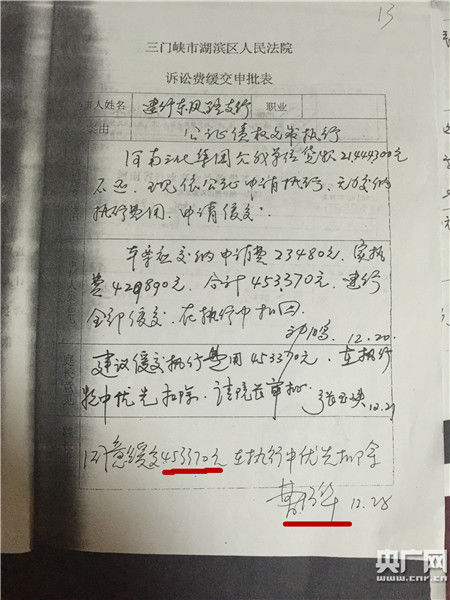 13
三门峡市湖滨区人民法院
诉讼费缓交申批表
事人姓名 建行东风路支行 职业
案由 公证债权文书执行
河南三化集团欠我单位贷款21444300元
不还，现依公证申请执行，无力交纳
执行费用，申请缓交。
本案应交纳申请费23480元，实执
费429890元，合计453370元，建行
全部缓交，在执行中扣回。
12.20.
建议缓交执行费用453370元，在执行
款中优先扣除，请院长审批。
12.21
同意缓交453370元在执行中优先扣除
12.28
央广网
www.cnr.cn